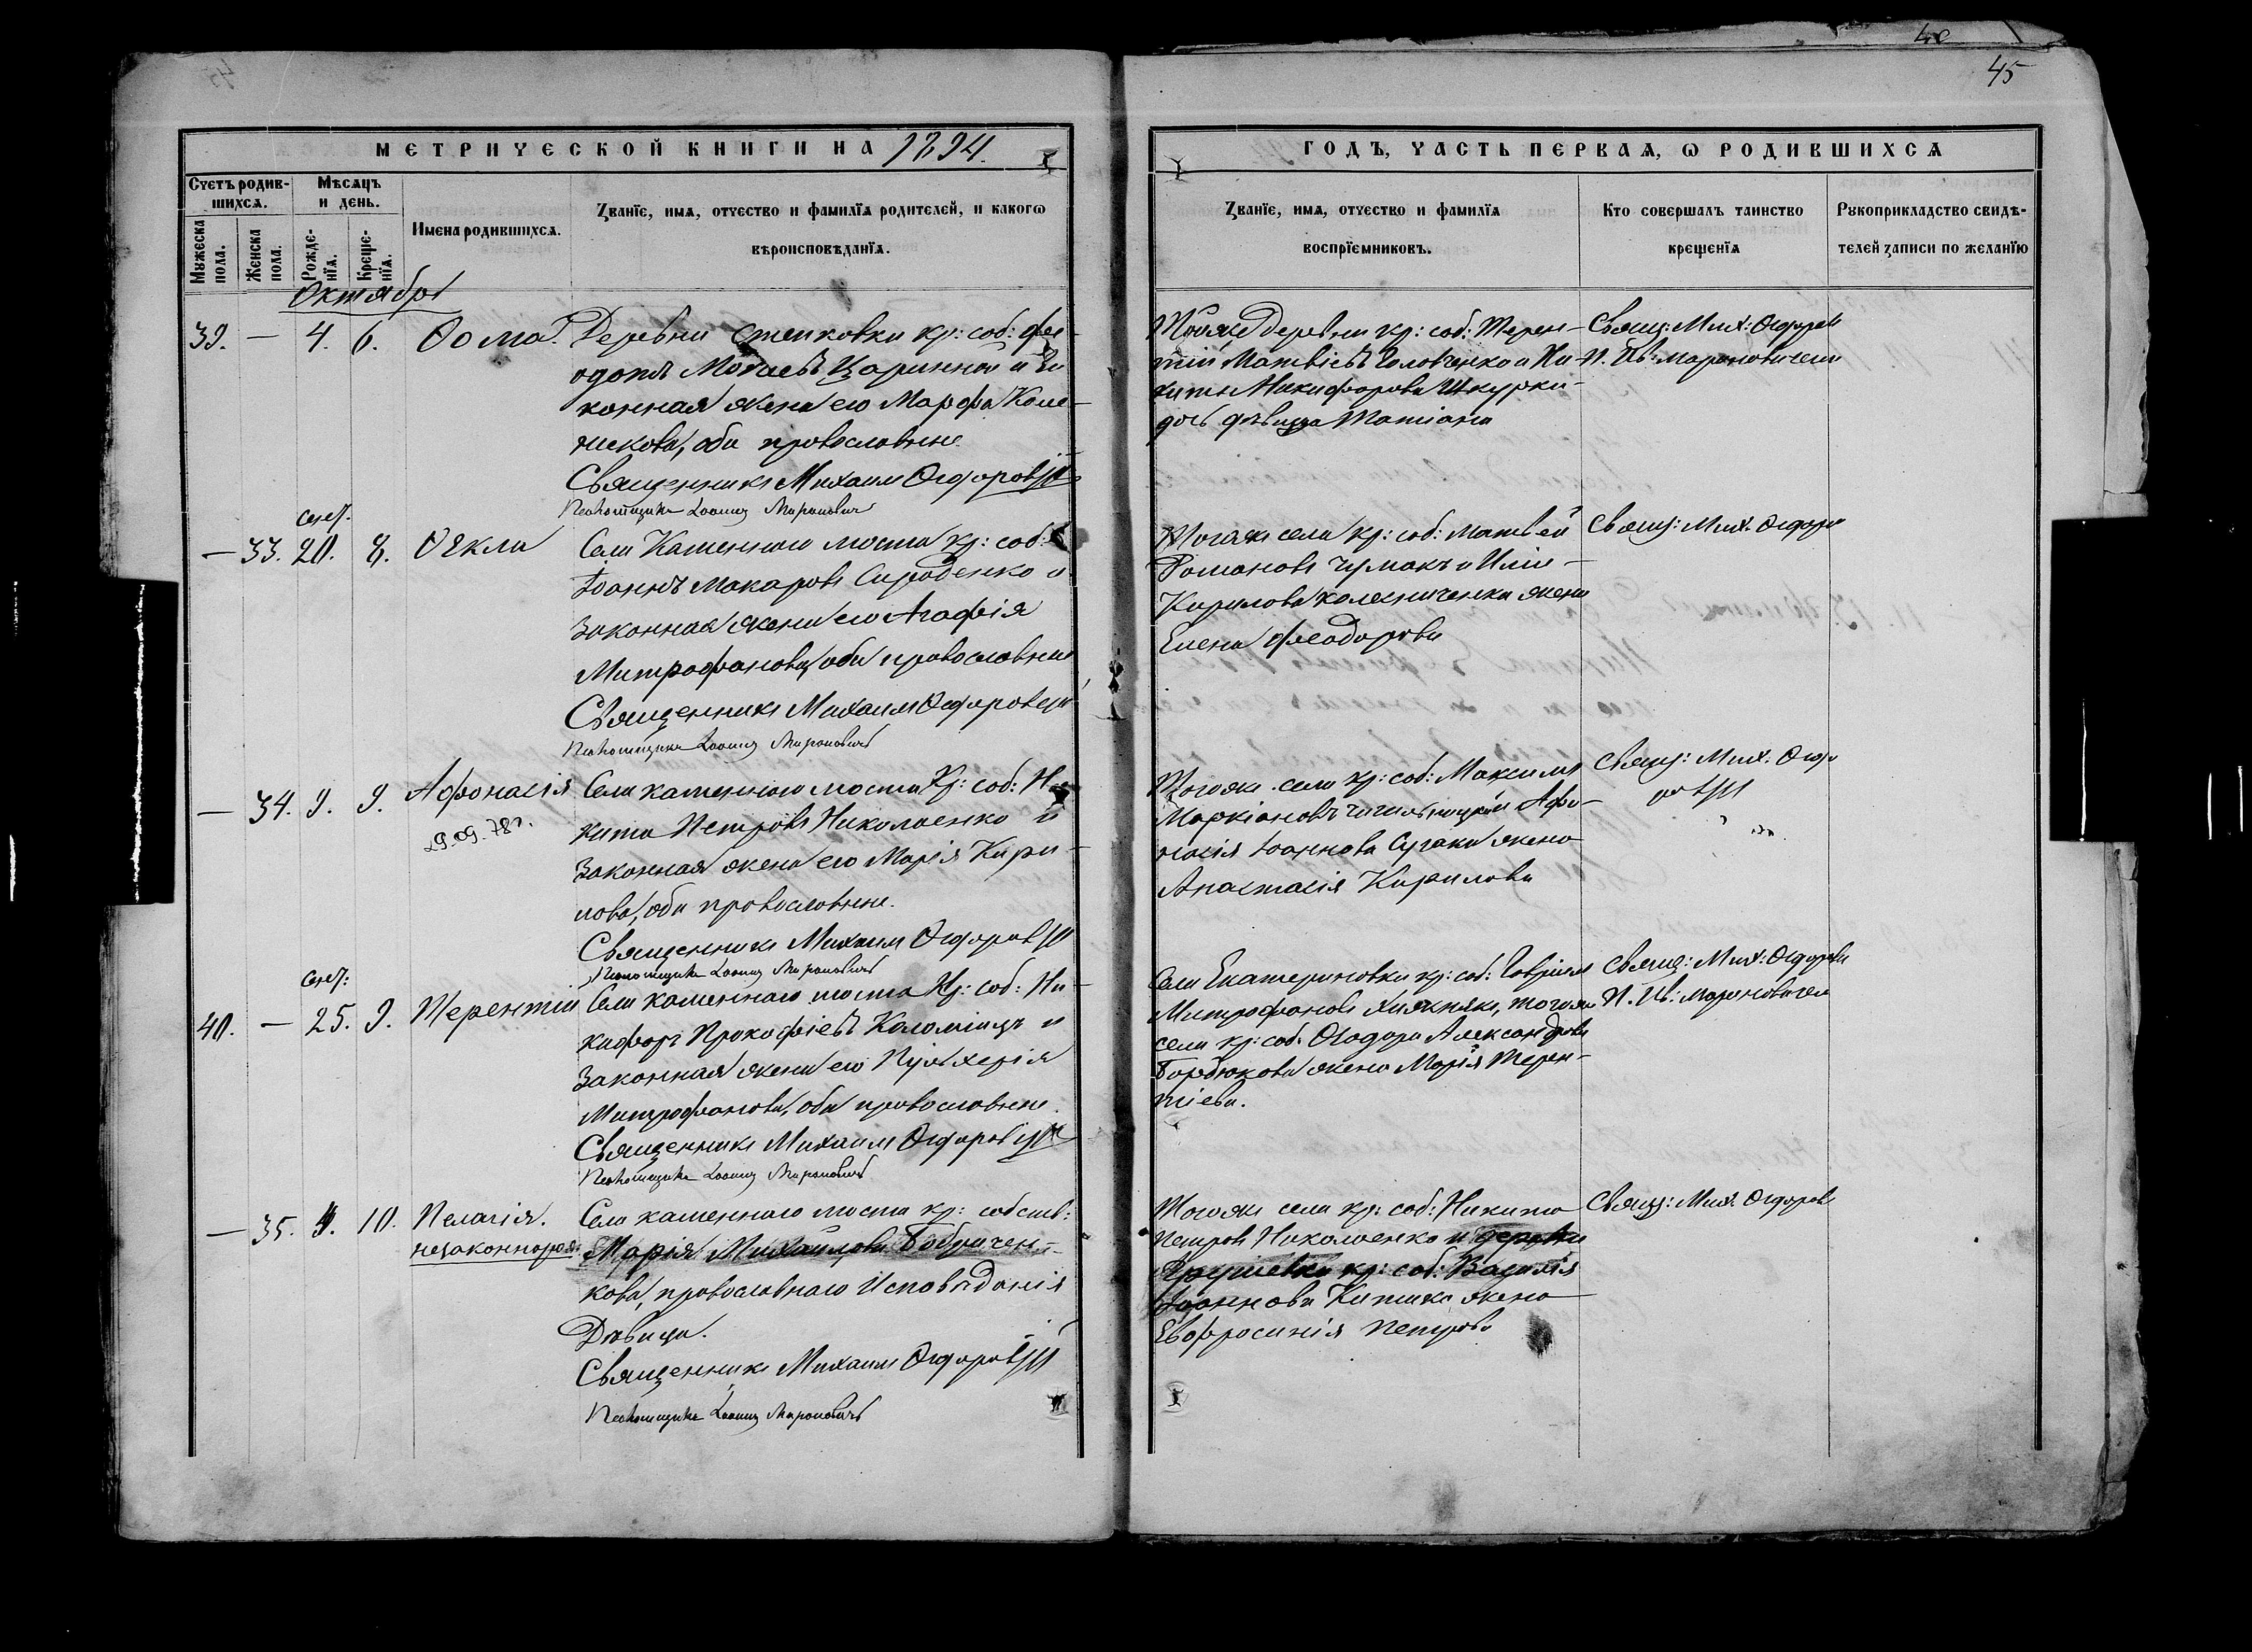 45
МЕТРИЧЕСКОЙ КНИГИ НА 1894.
ГОДЪ, ЧАСТЬ ПЕРВАЯ, Ѡ РОДИВШИХСЯ
Счетъ родив-
шихся.
Мужеска
пола.
Женска
пола.
Мѣсяцъ
и день.
Рожде-
нїя.
Креще-
нїя.
Имена родившихся.
Званїе, имя, отчество и фамилїя родителей, и какогѡ
вѣроисповѣданїя.
Званїе, имя, отчество и фамилїя
воспрїемниковъ.
Кто совершалъ таинство
крещенїя
Рукоприкладство свидѣ-
телей записи по желанїю
Октябрь
39. — 4. 6. Ѳома.
Деревни Степковки кр: соб: Ѳе-
одотъ Царинной и за
конная жена его Марфа
обы православные.
Священникъ Михаилъ Ѳедоров
Псаломщикъ Іоаннъ Мироновичъ
Тойже деревни кр: соб: Терен-
тій Матвіевъ Головченко и Ни-
киты Никифорова Шкурки
дочь дѣвица Татіана
Свящ: Мих: Ѳедоров
П. Ив: Мароновичем
Сент.
— 33. 20. 8. Ѳекла
Села Каменнаго моста кр: соб:
Іоаннъ Макаровъ Сиробенко и
законная жена его Агафія
Митрофанова, оба православные
Священникъ Михаилъ Ѳедоров
Псаломщикъ Іоаннъ Мироновичъ
Тогоже села кр: соб: Матвей
Романовъ Чумакъ и Иліи
Кирилова Колесниченка жена
Елена Феодорова
Свящ: Мих. Ѳедоров
— 34. 9. 9. Афонасія
29.09.78г.
Села Каменнаго моста Кр: соб: Ни-
кита Петровъ Николаенко и
законная жена его Марія Кири-
лова, оба православные.
Священникъ Михаилъ Ѳедоров
Псаломщикъ Іоаннъ Мироновичъ
Тогоже села кр: соб: Максимъ
Маркіановъ и Афо-
насія Іоаннова жена
Анастасія Кирилова
Свящ: Мих. Ѳедо
Сент:
40. — 25. 9. Терентій
Села Каменнаго моста Кр: соб: Ни-
кифоръ Прокофіевъ Коломіецъ и
законная жена его Пульхерія
Митрофанова, оба православные.
Священникъ Михаилъ Ѳедоров
Псаломщикъ Іоаннъ Мироновичъ
Села Екатериновки кр: соб: Гавріилъ
Митрофановъ Хижнякъ, тогоже
села кр: соб: Ѳеодора Александрова
Бордюкова жена Марія Терен-
тіева.
Свящ: Мих: Ѳедоров
П. Ив: Мароновичем
— 35. 4. 10. Пелагія.
незаконнорож.
Села Каменнаго моста кр: собств:
Марія Михайлова Бобричен-
кова, православнаго исповѣданія
Дѣвица.
Священникъ Михаилъ Ѳедоров
Псаломщикъ Іоаннъ Мироновичъ
Тогоже села кр: соб: Никита
Петровъ Николаенко и деревни
кр: соб: Василія
Іоаннова жена
Евфросинія Петрова
Свящ: Мих. Ѳедоров